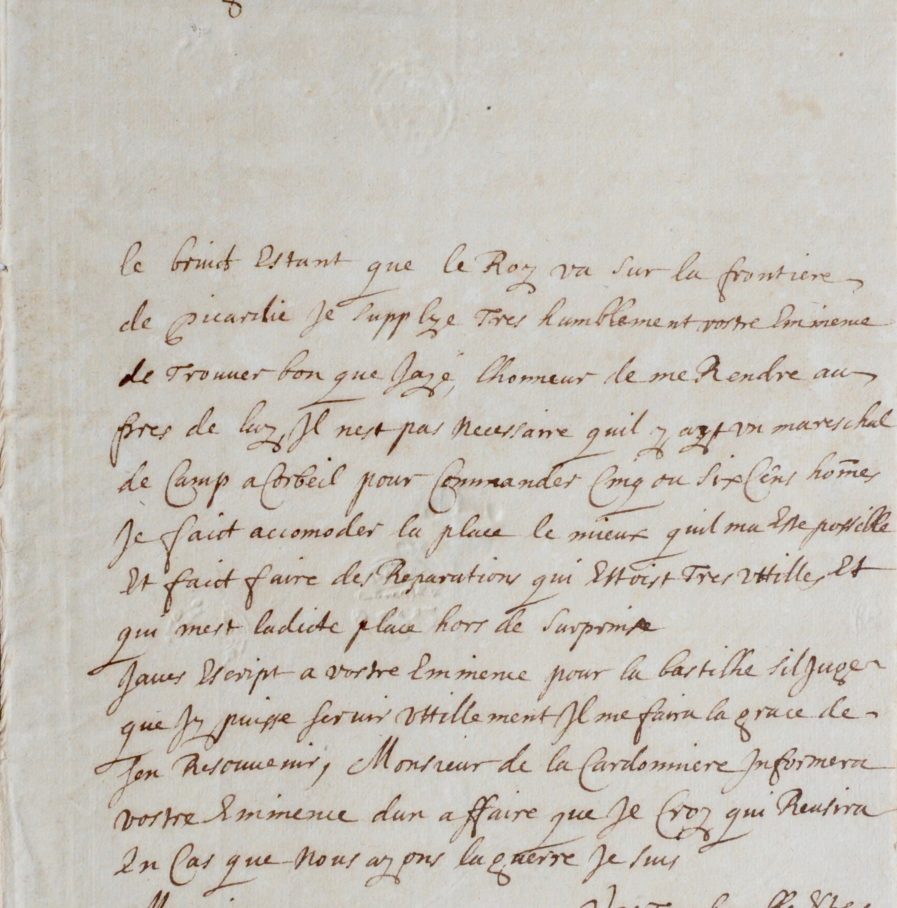 le bruict Estant que le Roy va sur la frontiere
de picardie Je supplye Tres humblement vostre Eminence
de Trouver bon que Jaye, lhonneur de me Rendre au
pres de luy, Il nest pas Necessaire quil y ayt un mareschal
de Camp a Corbeil pour Commander Cinq ou Six Cens hom̄es
Je faict accomoder la place le mieux quil ma Este possible
Et faict faire des Reparations qui Estoist Tres Uttilles, Et
qui mest ladicte place hors de Surprinse
Javes Escript a vostre Eminence pour la bastille sil Juge
que Jy puisse servir Uttillement Il me faira la grace de
sen Resouvenir, Monsieur de la Cardonniere Informera
vostre Eminence dun affaire que Je Croy qui Reusira
En Cas que Nous ayons la guerre Je suis